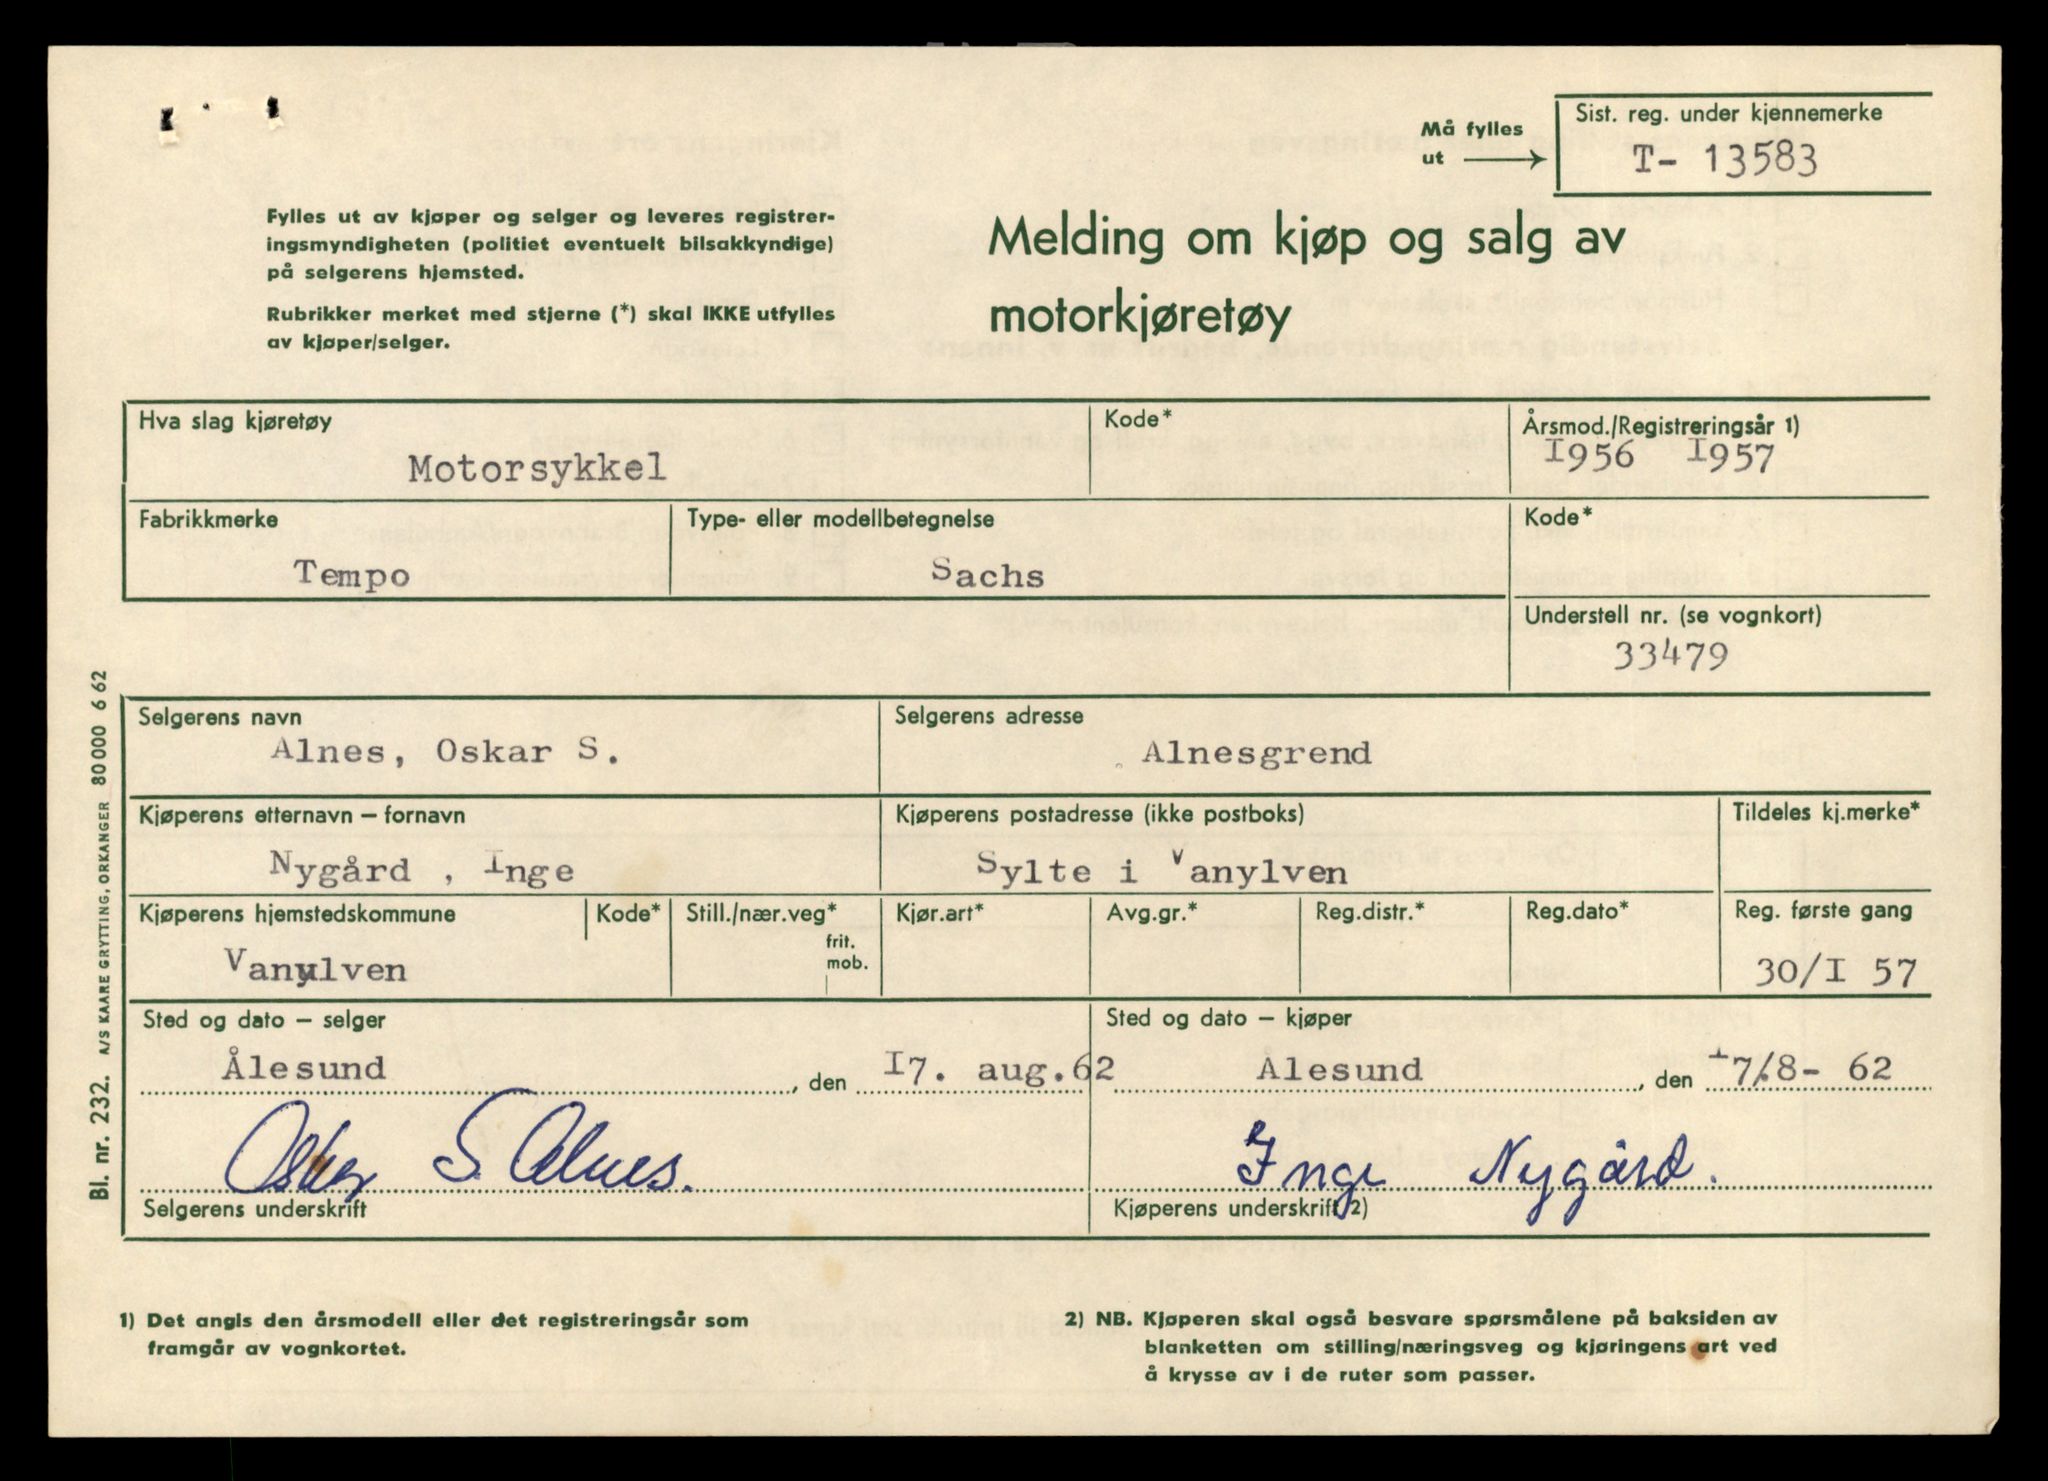 Må fylles
ut
Sist. reg. under kjennemerke
T- 13583
Fylles ut av kjøper og selger og leveres registrer-
ingsmyndigheten (politiet eventuelt bilsakkyndige)
på selgerens hjemsted.
Rubrikker merket med stjerne (*) skal IKKE utfylles
av kjøper/selger.
Melding om kjøp og salg av
motorkjøretøy
Hva slag kjøretøy
Kode*
Årsmod./Registreringsår 1)
Motorsykkel
I956 I957
Fabrikkmerke
Type- eller modellbetegnelse
Kode*
Tempo
Sachs
Understell nr. (se vognkort)
33479
Selgerens navn
Selgerens adresse
Alnes, Oskar S.
Alnesgrend
Kjøperens etternavn – fornavn
Kjøperens postadresse (ikke postboks)
Tildeles kj.merke*
Nygård , Inge
Sylte i Vanylven
Kjøperens hjemstedskommune
Kode*
Still./nær.veg*
frit.
mob.
Kjør.art*
Avg.gr.*
Reg.distr.*
Reg.dato*
Reg. første gang
Vanylven
30/I 57
Sted og dato – selger
Sted og dato – kjøper
Ålesund , den I7. aug.62
Ålesund , den I7/8- 62
Oskar S. Alnes.
Inge Nygård.
Selgerens underskrift
Kjøperens underskrift 2)
1) Det angis den årsmodell eller det registreringsår som
framgår av vognkortet.
2) NB. Kjøperen skal også besvare spørsmålene på baksiden av
blanketten om stilling/næringsveg og kjøringens art ved
å krysse av i de ruter som passer.
Bl. nr. 232. A/S KAARE GRYTTING, ORKANGER 80000 6 62